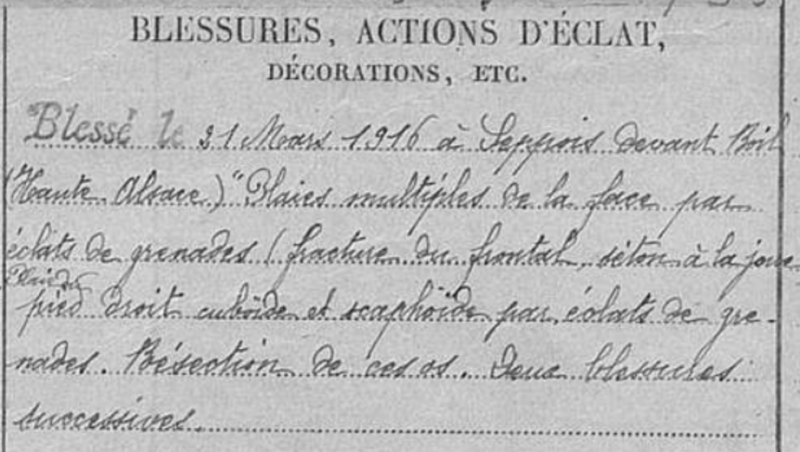 BLESSURES, ACTIONS D'ÉCLAT,
DÉCORATIONS, ETC.
Blessé le 31 Mars 1916 à Seppois devant
(Haute Alsace) "Plaies multiples de la face par
éclats de grenades (fracture du frontal, séton à la joue
Plaie du
pied droit cuboïde et scaphoïde par éclats de gre-
nades. Résection de ces os. Deux blessures
successives.